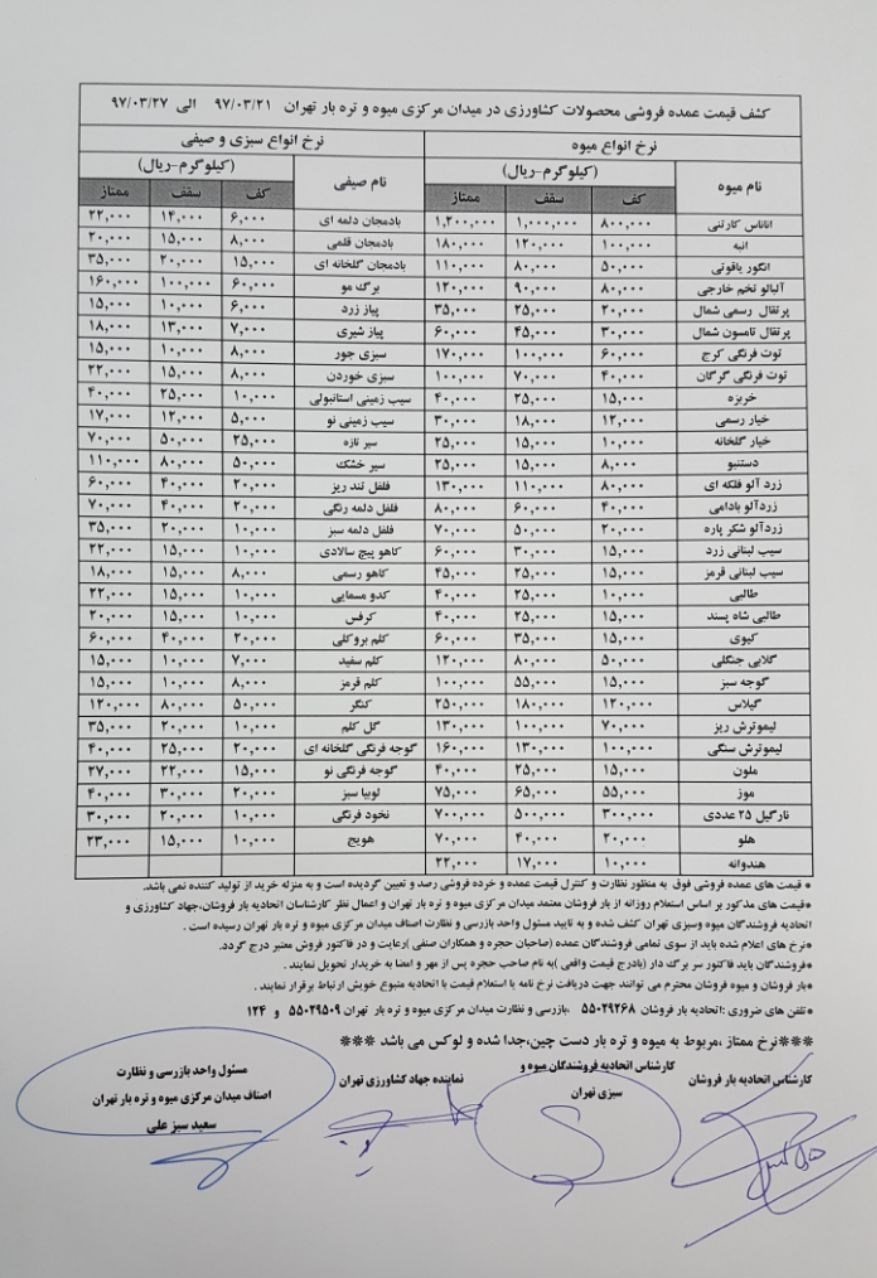 کشف قیمت عمده فروشی محصولات کشاورزی در میدان مرکزی میوه و تره بار تهران ۹۷/۰۳/۲۱ الی ۹۷/۰۳/۲۷
نرخ انواع میوه نرخ انواع سبزی و صیفی
نام میوه (کیلوگرم-ریال) نام صیفی (کیلوگرم-ریال)
کف سقف ممتاز کف سقف ممتاز
اناناس کارتنی ۸۰۰,۰۰۰ ۱,۰۰۰,۰۰۰ ۱,۲۰۰,۰۰۰ بادمجان دلمه ای ۶,۰۰۰ ۱۲,۰۰۰ ۲۲,۰۰۰
انبه ۱۰۰,۰۰۰ ۱۲۰,۰۰۰ ۱۸۰,۰۰۰ بادمجان قلمی ۸,۰۰۰ ۱۵,۰۰۰ ۲۰,۰۰۰
انگور یاقوتی ۵۰,۰۰۰ ۸۰,۰۰۰ ۱۱۰,۰۰۰ بادمجان گلخانه ای ۱۵,۰۰۰ ۲۰,۰۰۰ ۳۵,۰۰۰
آلبالو تخم خارجی ۸۰,۰۰۰ ۹۰,۰۰۰ ۱۲۰,۰۰۰ برگ مو ۶۰,۰۰۰ ۱۰۰,۰۰۰ ۱۶۰,۰۰۰
پرتقال رسمی شمال ۲۰,۰۰۰ ۲۵,۰۰۰ ۳۵,۰۰۰ پیاز زرد ۶,۰۰۰ ۱۰,۰۰۰ ۱۵,۰۰۰
پرتقال تامسون شمال ۳۰,۰۰۰ ۴۵,۰۰۰ ۶۰,۰۰۰ پیاز شیری ۷,۰۰۰ ۱۳,۰۰۰ ۱۸,۰۰۰
توت فرنگی کرج ۶۰,۰۰۰ ۱۰۰,۰۰۰ ۱۷۰,۰۰۰ سبزی جور ۸,۰۰۰ ۱۰,۰۰۰ ۱۵,۰۰۰
توت فرنگی گرگان ۴۰,۰۰۰ ۷۰,۰۰۰ ۱۰۰,۰۰۰ سبزی خوردن ۸,۰۰۰ ۱۵,۰۰۰ ۲۲,۰۰۰
خربزه ۱۵,۰۰۰ ۲۵,۰۰۰ ۴۰,۰۰۰ سیب زمینی استانبولی ۱۰,۰۰۰ ۲۵,۰۰۰ ۴۰,۰۰۰
خیار رسمی ۱۲,۰۰۰ ۱۸,۰۰۰ ۳۰,۰۰۰ سیب زمینی نو ۵,۰۰۰ ۱۲,۰۰۰ ۱۷,۰۰۰
خیار گلخانه ۱۰,۰۰۰ ۱۵,۰۰۰ ۲۵,۰۰۰ سیر تازه ۲۵,۰۰۰ ۵۰,۰۰۰ ۷۰,۰۰۰
دستنبو ۸,۰۰۰ ۱۵,۰۰۰ ۲۵,۰۰۰ سیر خشک ۵۰,۰۰۰ ۸۰,۰۰۰ ۱۱۰,۰۰۰
زرد آلو فلکه ای ۸۰,۰۰۰ ۱۱۰,۰۰۰ ۱۳۰,۰۰۰ فلفل تند ریز ۲۰,۰۰۰ ۴۰,۰۰۰ ۶۰,۰۰۰
زردآلو بادامی ۴۰,۰۰۰ ۶۰,۰۰۰ ۸۰,۰۰۰ فلفل دلمه رنگی ۲۰,۰۰۰ ۴۰,۰۰۰ ۷۰,۰۰۰
زردآلو شکر پاره ۲۰,۰۰۰ ۵۰,۰۰۰ ۷۰,۰۰۰ فلفل دلمه سبز ۱۰,۰۰۰ ۲۰,۰۰۰ ۳۵,۰۰۰
سیب لبنانی زرد ۱۵,۰۰۰ ۳۰,۰۰۰ ۶۰,۰۰۰ کاهو پیچ سالادی ۱۰,۰۰۰ ۱۵,۰۰۰ ۲۲,۰۰۰
سیب لبنانی قرمز ۱۵,۰۰۰ ۲۵,۰۰۰ ۴۵,۰۰۰ کاهو رسمی ۸,۰۰۰ ۱۵,۰۰۰ ۱۸,۰۰۰
طالبی ۱۰,۰۰۰ ۲۵,۰۰۰ ۴۰,۰۰۰ کدو مسمایی ۱۰,۰۰۰ ۱۵,۰۰۰ ۲۲,۰۰۰
طالبی شاه پسند ۱۵,۰۰۰ ۲۵,۰۰۰ ۴۰,۰۰۰ کرفس ۱۰,۰۰۰ ۱۵,۰۰۰ ۲۰,۰۰۰
کیوی ۱۵,۰۰۰ ۳۵,۰۰۰ ۶۰,۰۰۰ کلم بروکلی ۲۰,۰۰۰ ۴۰,۰۰۰ ۶۰,۰۰۰
گلابی جنگلی ۵۰,۰۰۰ ۸۰,۰۰۰ ۱۲۰,۰۰۰ کلم سفید ۷,۰۰۰ ۱۰,۰۰۰ ۱۵,۰۰۰
گوجه سبز ۱۵,۰۰۰ ۵۵,۰۰۰ ۱۰۰,۰۰۰ کلم قرمز ۸,۰۰۰ ۱۰,۰۰۰ ۱۵,۰۰۰
گیلاس ۱۲۰,۰۰۰ ۱۸۰,۰۰۰ ۲۵۰,۰۰۰ کنگر ۵۰,۰۰۰ ۸۰,۰۰۰ ۱۲۰,۰۰۰
لیموترش ریز ۷۰,۰۰۰ ۱۰۰,۰۰۰ ۱۳۰,۰۰۰ گل کلم ۱۰,۰۰۰ ۲۰,۰۰۰ ۳۵,۰۰۰
لیموترش سنگی ۱۰۰,۰۰۰ ۱۳۰,۰۰۰ ۱۶۰,۰۰۰ گوجه فرنگی گلخانه ای ۲۰,۰۰۰ ۲۵,۰۰۰ ۴۰,۰۰۰
ملون ۱۵,۰۰۰ ۲۵,۰۰۰ ۴۰,۰۰۰ گوجه فرنگی نو ۱۵,۰۰۰ ۲۲,۰۰۰ ۲۷,۰۰۰
موز ۵۵,۰۰۰ ۶۵,۰۰۰ ۷۵,۰۰۰ لوبیا سبز ۲۰,۰۰۰ ۳۰,۰۰۰ ۴۰,۰۰۰
نارگیل ۲۵ عددی ۳۰۰,۰۰۰ ۵۰۰,۰۰۰ ۷۰۰,۰۰۰ نخود فرنگی ۱۰,۰۰۰ ۲۰,۰۰۰ ۳۰,۰۰۰
هلو ۲۰,۰۰۰ ۴۰,۰۰۰ ۷۰,۰۰۰ هویج ۱۰,۰۰۰ ۱۵,۰۰۰ ۲۳,۰۰۰
هندوانه ۱۰,۰۰۰ ۱۷,۰۰۰ ۲۲,۰۰۰
* قیمت های عمده فروشی فوق به منظور نظارت و کنترل قیمت عمده و خرده فروشی رصد و تعیین گردیده است و به منزله خرید از تولید کننده نمی باشد.
*قیمت های مذکور بر اساس استعلام روزانه از بار فروشان معتمد میدان مرکزی میوه و تره بار تهران و اعمال نظر کارشناسان اتحادیه بار فروشان،جهاد کشاورزی و
اتحادیه فروشندگان میوه وسبزی تهران کشف شده و به تایید مسئول واحد بازرسی و نظارت اصناف میدان مرکزی میوه و تره بار تهران رسیده است .
*نرخ های اعلام شده باید از سوی تمامی فروشندگان عمده (صاحبان حجره و همکاران صنفی )رعایت و در فاکتور فروش معتبر درج گردد.
*فروشندگان باید فاکتور سر برگ دار (بادرج قیمت واقعی )به نام صاحب حجره پس از مهر و امضا به خریدار تحویل نمایند .
*بار فروشان و میوه فروشان محترم می توانند جهت دریافت نرخ نامه یا استعلام قیمت با اتحادیه متبوع خویش ارتباط برقرار نمایند .
*تلفن های ضروری :اتحادیه بار فروشان ۵۵۰۲۹۲۶۸ ،بازرسی و نظارت میدان مرکزی میوه و تره بار تهران ۵۵۰۲۹۵۰۹ و ۱۲۴
***نرخ ممتاز ،مربوط به میوه و تره بار دست چین،جدا شده و لوکس می باشد ***
کارشناس اتحادیه بار فروشان
کارشناس اتحادیه فروشندگان میوه و
سبزی تهران
نماینده جهاد کشاورزی تهران
مسئول واحد بازرسی و نظارت
اصناف میدان مرکزی میوه و تره بار تهران
سعید سبز علی